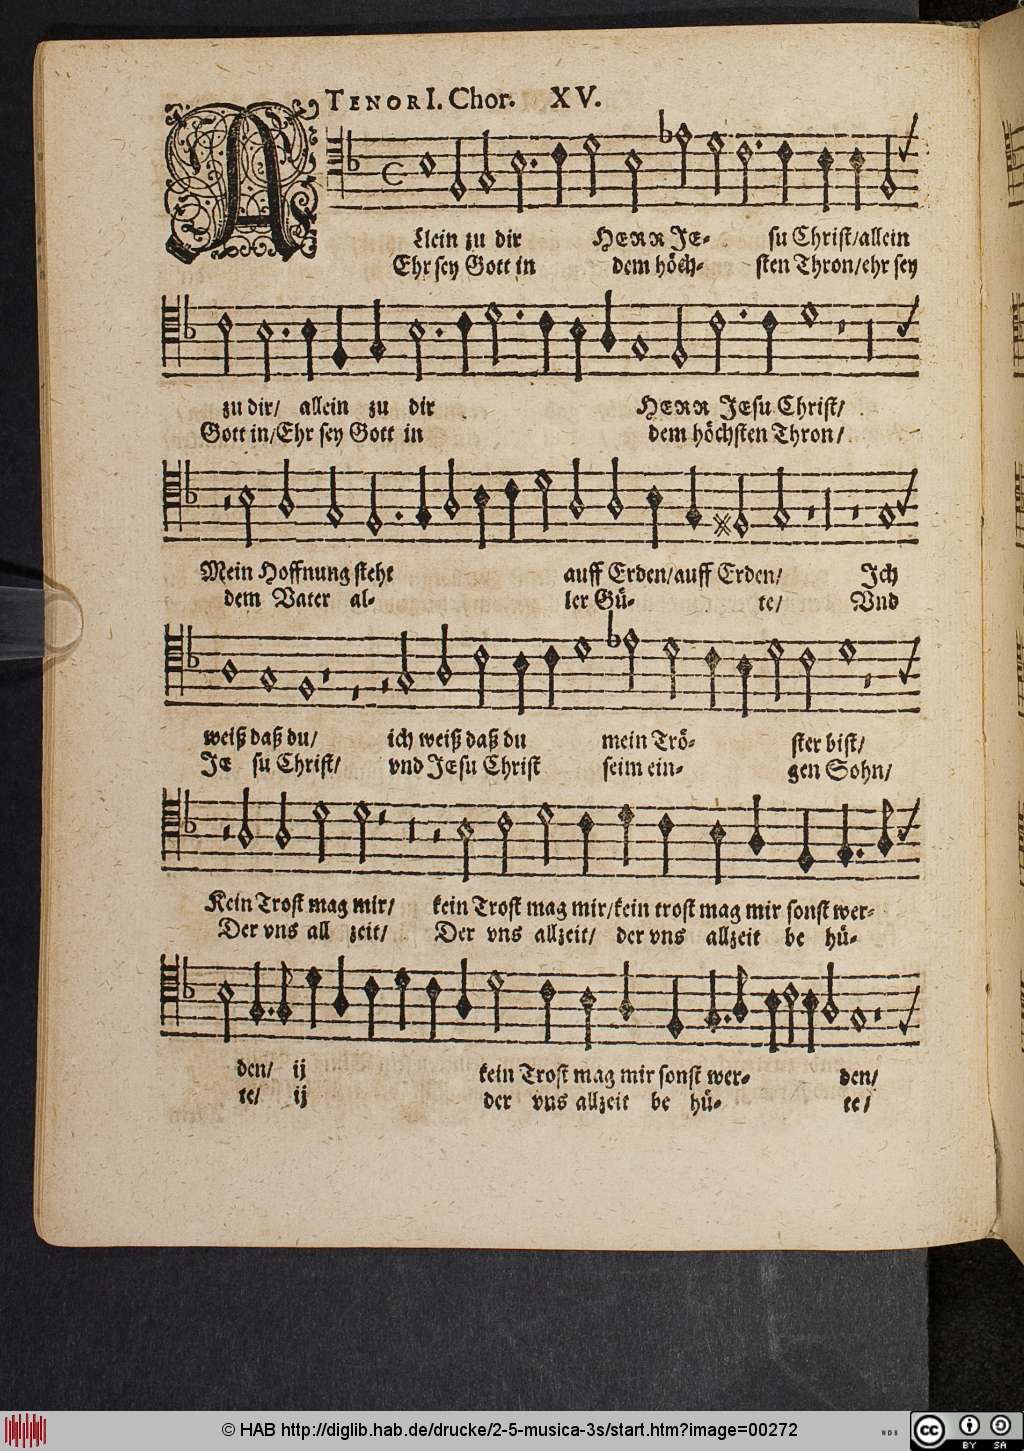 TENOR I. Chor. XV.
Allein zu dir HERR JE- su Christ/allein
Ehr sey Gott in dem höch- sten Thron/ehr sey
zu dir/ allein zu dir HERR JEsu Christ/
Gott in/Ehr sey Gott in dem höchsten Thron/
Mein Hoffnung steht auff Erden/auff Erden/ Ich
dem Vater al- ler Gü- te/ Vnd
weiß daß du/ ich weiß daß du mein Trö- ster bist/
JE su Christ/ vnd JEsu Christ seim ein- gen Sohn/
Kein Trost mag mir/ kein Trost mag mir/kein trost mag mir sonst wer-
Der vns all zeit/ Der vns allzeit/ der vns allzeit be hü-
den/ ij kein Trost mag mir sonst wer- den/
te/ ij der vns allzeit be hü- te/
© HAB http://diglib.hab.de/drucke/2-5-musica-3s/start.htm?image=00272
WDB
cc BY SA